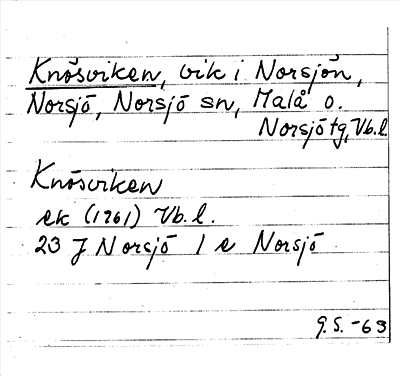 Knösviken, vik i Norsjön,
Norsjö, Norsjö sn, Malå o.
Norsjö tg, Vb.l.
Knösviken
ek (1961) Vb.l.
23 J Norsjö 1 e Norsjö
G.S. -63